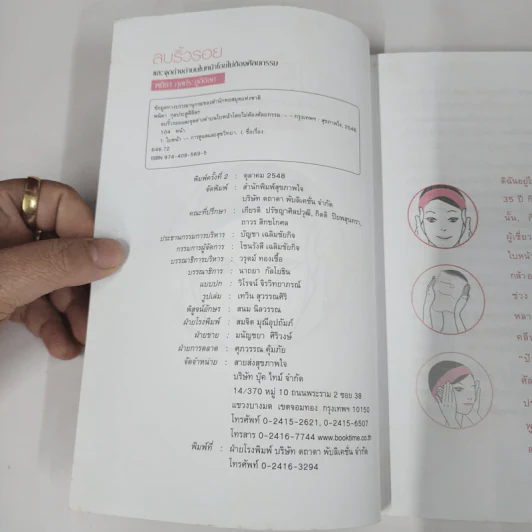 ลบริ้วรอย
และจุดด่างดำบนใบหน้าโดยไม่ต้องศัลยกรรม
พนิดา กุลประสูติดิลก
ข้อมูลทางบรรณานุกรมของสำนักหอสมุดแห่งชาติ
พนิดา กุลประสูติดิลก
ลบริ้วรอยและจุดด่างดำบนใบหน้าโดยไม่ต้องศัลยกรรม. - - กรุงเทพฯ : สุขภาพใจ, 2548
104 หน้า
1. ใบหน้า -- การดูแลและสุขวิทยา. I. ชื่อเรื่อง.
646.72
ISBN 974-409-569-5
พิมพ์ครั้งที่ 2 : ตุลาคม 2548
จัดพิมพ์ : สำนักพิมพ์สุขภาพใจ
บริษัท ตถาตา พับลิเคชั่น จำกัด
คณะที่ปรึกษา : เกียรติ ปรัชญาศิลปวุฒิ, กิตติ
ถาวร สิกขโกศล
ประธานกรรมการบริหาร : บัญชา เฉลิมชัยกิจ
กรรมการผู้จัดการ : โชนรังสี เฉลิมชัยกิจ
บรรณาธิการบริหาร : วรุตม์ ทองเชื้อ
บรรณาธิการ : นาถยา กัลโยธิน
แบบปก : วิโรจน์ จิรวิทยาภรณ์
รูปเล่ม : เทวัน สุวรรณศิริ
พิสูจน์อักษร : สนม นิลวรรณ
ฝ่ายโรงพิมพ์ : สมจิต มุณีอุปถัมภ์
ฝ่ายขาย : มนัญชยา ศิริวงษ์
ฝ่ายการตลาด : ศุภวรรณ คุ้มภัย
จัดจำหน่าย : สายส่งสุขภาพใจ
บริษัท บุ๊ค ไทม์ จำกัด
14/370 หมู่ 10 ถนนพระราม 2 ซอย 38
แขวงบางมด เขตจอมทอง กรุงเทพฯ 10150
โทรศัพท์ 0-2415-2621, 0-2415-6507
โทรสาร 0-2416-7744 www.booktime.co.th
พิมพ์ที่ : ฝ่ายโรงพิมพ์ บริษัท ตถาตา พับลิเคชั่น จำกัด
โทรศัพท์ 0-2416-3294
ดีฉันอยู่ใ
35 ปี
นั้น,
ผู้เชี่ย
ใบหน้
กล้าอ
ช่วง
หลา
คลึง
"ป
ศัล
ปร